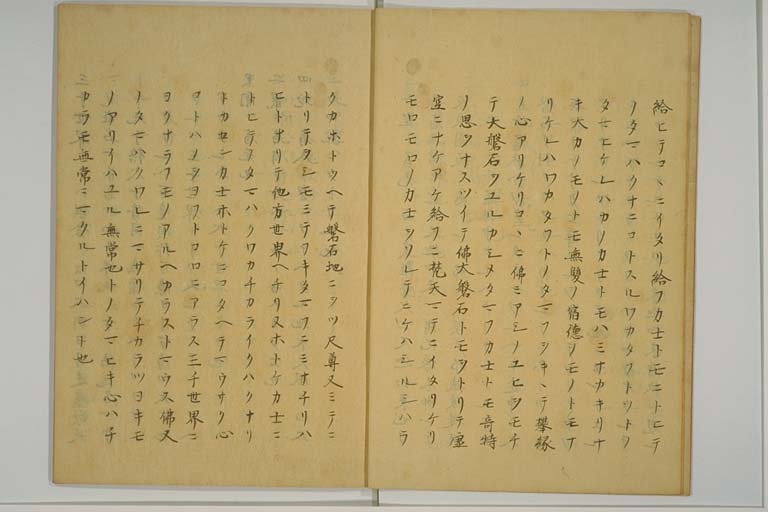 給ヒテコヽニイタリ給フカ士トモニトヒテ
ノタマハクナニコトスルワカタフトツトシ
タマヒケレハカノカ士トモハミナカキリナ
キ大カノモノトモ無髪ノ宿徳シモノトモナ
リケレハワカタフトノタマフシキヽテ攀縁
ノ心アリケリコヽニ佛ミアシノユヒシモチ
テ大磐石ツユルカシメタマフカ士トモ奇特
ノ思ツナスツイテ佛大磐石トモツトリテ虚
空ニナケアケ給フニ梵天マテニイタリケリ
モロモロノカ士ツリレテニケハシルシハラ
クカホトツヘテ磐石地ニシツ尺尊又ミテニ
トリテタシモミテフキタマフニミナチリハ
ヒトナリテ他方世界ヘチリヌホトケカ士ニ
トヒテノタマハクワカチカライクハクナリ
トカセンカ士ホトケニコタヘテマウサリ心
コトハノヲヨフトコロニアラス三千世界ニ
ヨクナラフモノアルヘカラストマウス佛又
ノタマハクワレニマサリテチカラツヨキモ
ノアリイハユル無常也トノタマヒキ心ハチ
カラモ無常ニマクルトイハント也